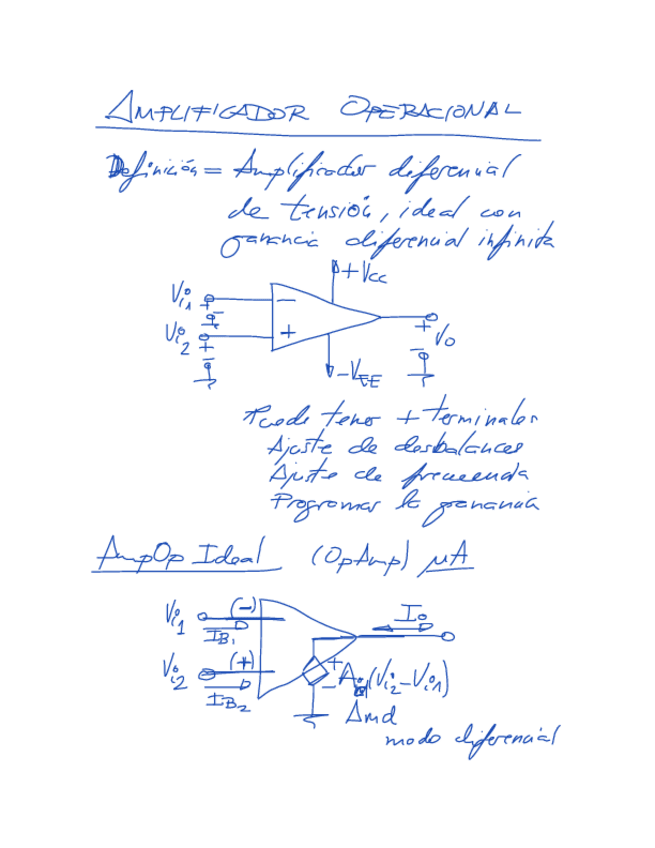 AMPLIFICADOR OPERACIONAL
Definición = Amplificador diferencial
de tensión, ideal con
ganancia diferencial infinita
+Vcc
Vi1
−
+
−
Vi2
+
+
−
+
−
Vo
−VEE
Puede tener + terminales
Ajuste de desbalances
Ajuste de frecuencia
Programar la ganancia
AmpOp Ideal (OpAmp) μA
Vi1 (−)
IB1
Io
Vi2 (+)
IB2
+
− A (Vi2−Vi1)
Amd
modo diferencial